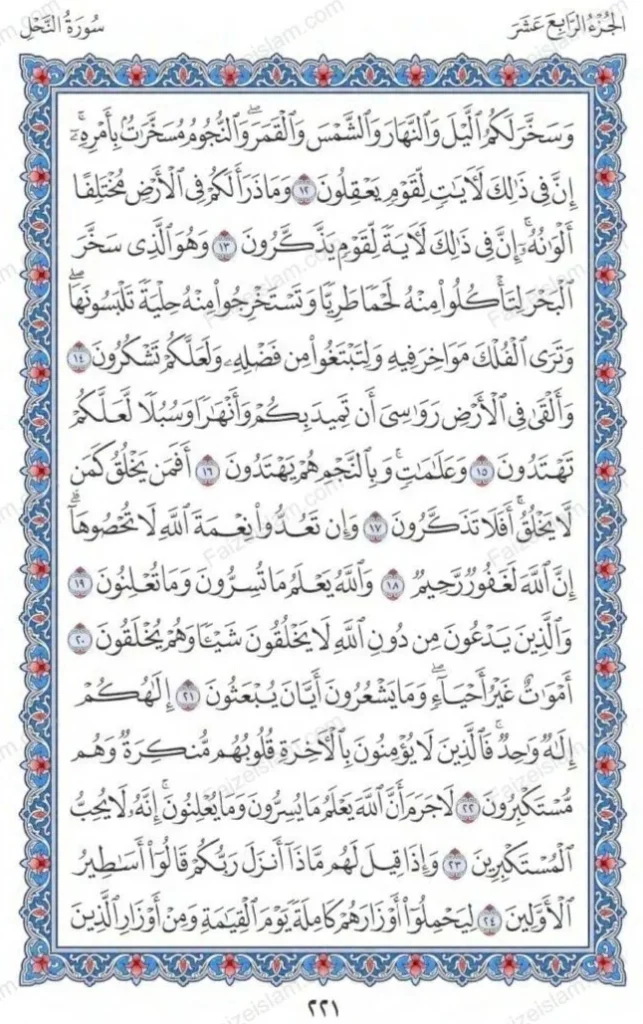 الجُزْءُ الرَّابِعَ عَشَرَ
سُورَةُ النَّحْلِ
وَسَخَّرَ لَكُمُ الَّيْلَ وَالنَّهَارَ وَالشَّمْسَ وَالْقَمَرَ ۖ وَالنُّجُومُ مُسَخَّرَاتٌ بِأَمْرِهِ ۚ
إِنَّ فِي ذَالِكَ لَآيَاتٍ لِّقَوْمٍ يَعْقِلُونَ ١٢ وَمَا ذَرَأَ لَكُمْ فِي الْأَرْضِ مُخْتَلِفًا
أَلْوَانُهُ ۚ إِنَّ فِي ذَالِكَ لَآيَةً لِّقَوْمٍ يَذَّكَّرُونَ ١٣ وَهُوَ الَّذِي سَخَّرَ
الْبَحْرَ لِتَأْكُلُوا مِنْهُ لَحْمًا طَرِيًّا وَتَسْتَخْرِجُوا مِنْهُ حِلْيَةً تَلْبَسُونَهَا ۖ
وَتَرَى الْفُلْكَ مَوَاخِرَ فِيهِ وَلِتَبْتَغُوا مِن فَضْلِهِ وَلَعَلَّكُمْ تَشْكُرُونَ ١٤
وَأَلْقَىٰ فِي الْأَرْضِ رَوَاسِيَ أَن تَمِيدَ بِكُمْ وَأَنْهَارًا وَسُبُلًا لَّعَلَّكُمْ
تَهْتَدُونَ ١٥ وَعَلَامَاتٍ ۚ وَبِالنَّجْمِ هُمْ يَهْتَدُونَ ١٦ أَفَمَن يَخْلُقُ كَمَن
لَّا يَخْلُقُ ۗ أَفَلَا تَذَكَّرُونَ ١٧ وَإِن تَعُدُّوا نِعْمَةَ اللَّهِ لَا تُحْصُوهَا ۗ
إِنَّ اللَّهَ لَغَفُورٌ رَّحِيمٌ ١٨ وَاللَّهُ يَعْلَمُ مَا تُسِرُّونَ وَمَا تُعْلِنُونَ ١٩
وَالَّذِينَ يَدْعُونَ مِن دُونِ اللَّهِ لَا يَخْلُقُونَ شَيْئًا وَهُمْ يُخْلَقُونَ ٢٠
أَمْوَاتٌ غَيْرُ أَحْيَاءٍ ۖ وَمَا يَشْعُرُونَ أَيَّانَ يُبْعَثُونَ ٢١ إِلَٰهُكُمْ
إِلَٰهٌ وَاحِدٌ ۚ فَالَّذِينَ لَا يُؤْمِنُونَ بِالْآخِرَةِ قُلُوبُهُم مُّنكِرَةٌ وَهُم
مُّسْتَكْبِرُونَ ٢٢ لَا جَرَمَ أَنَّ اللَّهَ يَعْلَمُ مَا يُسِرُّونَ وَمَا يُعْلِنُونَ ۚ إِنَّهُ لَا يُحِبُّ
الْمُسْتَكْبِرِينَ ٢٣ وَإِذَا قِيلَ لَهُم مَّاذَا أَنزَلَ رَبُّكُمْ قَالُوا أَسَاطِيرُ
الْأَوَّلِينَ ٢٤ لِيَحْمِلُوا أَوْزَارَهُمْ كَامِلَةً يَوْمَ الْقِيَامَةِ وَمِنْ أَوْزَارِ الَّذِينَ
٢٢١
Faizeislam.com